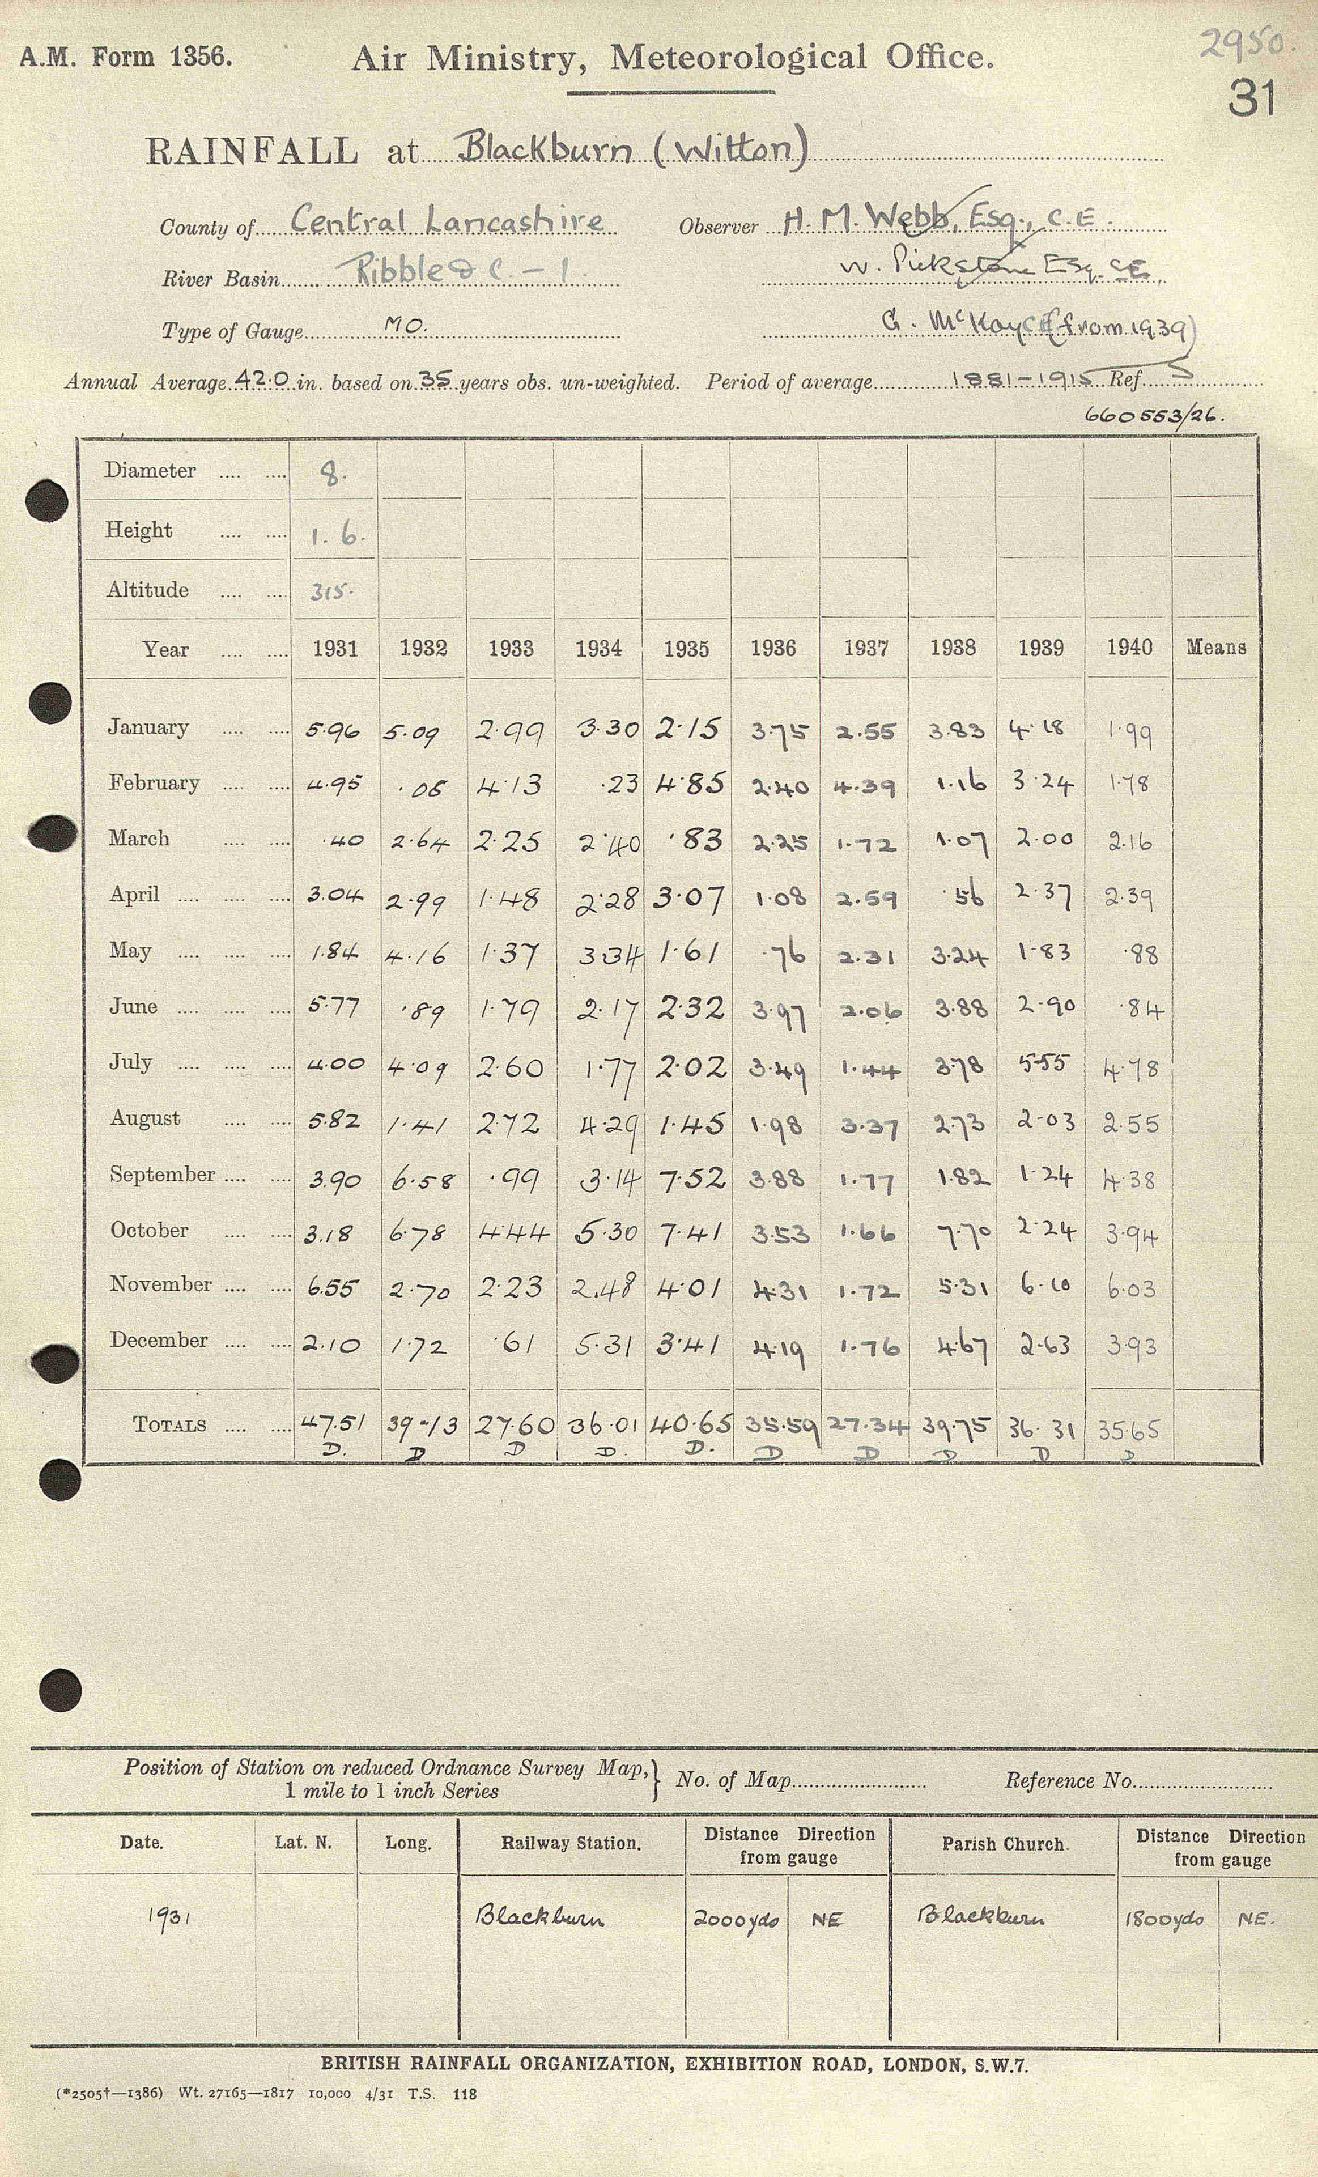 2950.
A.M. Form 1356. Air Ministry, Meteorological Office.
31
RAINFALL at Blackburn (Witton)
County of Central Lancashire Observer H. M. Webb, Esq., C.E.
River Basin Ribble & C. – 1. W. Pickstone Esq. CE.
Type of Gauge MO. G. McKay CE (from 1939)
Annual Average 42.0 in. based on 35 years obs. un-weighted. Period of average 1881–1915 Ref
660553/26.
Diameter 8.
Height 1.6.
Altitude 315.
Year 1931 1932 1933 1934 1935 1936 1937 1938 1939 1940 Means
January 5.96 5.09 2.99 3.30 2.15 3.75 2.55 3.83 4.18 1.99
February 4.95 .08 4.13 .23 4.85 2.40 4.39 1.16 3.24 1.78
March .40 2.64 2.25 2.40 .83 2.25 1.72 1.07 2.00 2.16
April 3.04 2.99 1.48 2.28 3.07 1.08 2.59 .56 2.37 2.39
May 1.84 4.16 1.37 3.34 1.61 .76 2.31 3.24 1.83 .88
June 5.77 .89 1.79 2.17 2.32 3.97 2.06 3.88 2.90 .84
July 4.00 4.09 2.60 1.77 2.02 3.49 1.44 3.78 5.55 4.78
August 5.82 1.41 2.72 4.29 1.45 1.98 3.37 2.73 2.03 2.55
September 3.90 6.58 .99 3.14 7.52 3.88 1.77 1.82 1.24 4.38
October 3.18 6.78 4.44 5.30 7.41 3.53 1.66 7.70 2.24 3.94
November 6.55 2.70 2.23 2.48 4.01 4.31 1.72 5.31 6.10 6.03
December 2.10 1.72 .61 5.31 3.41 4.19 1.76 4.67 2.63 3.93
TOTALS 47.51 39.13 27.60 36.01 40.65 35.59 27.34 39.75 36.31 35.65
D. D D D. D. D D D D D
Position of Station on reduced Ordnance Survey Map,} No. of Map Reference No.
1 mile to 1 inch Series
Date. Lat. N. Long. Railway Station. Distance Direction from gauge Parish Church. Distance Direction from gauge
1931 Blackburn 2000yds NE Blackburn 1800yds NE.
BRITISH RAINFALL ORGANIZATION, EXHIBITION ROAD, LONDON, S.W.7.
(*2505†—1386) Wt. 27165—1817 10,000 4/31 T.S. 118